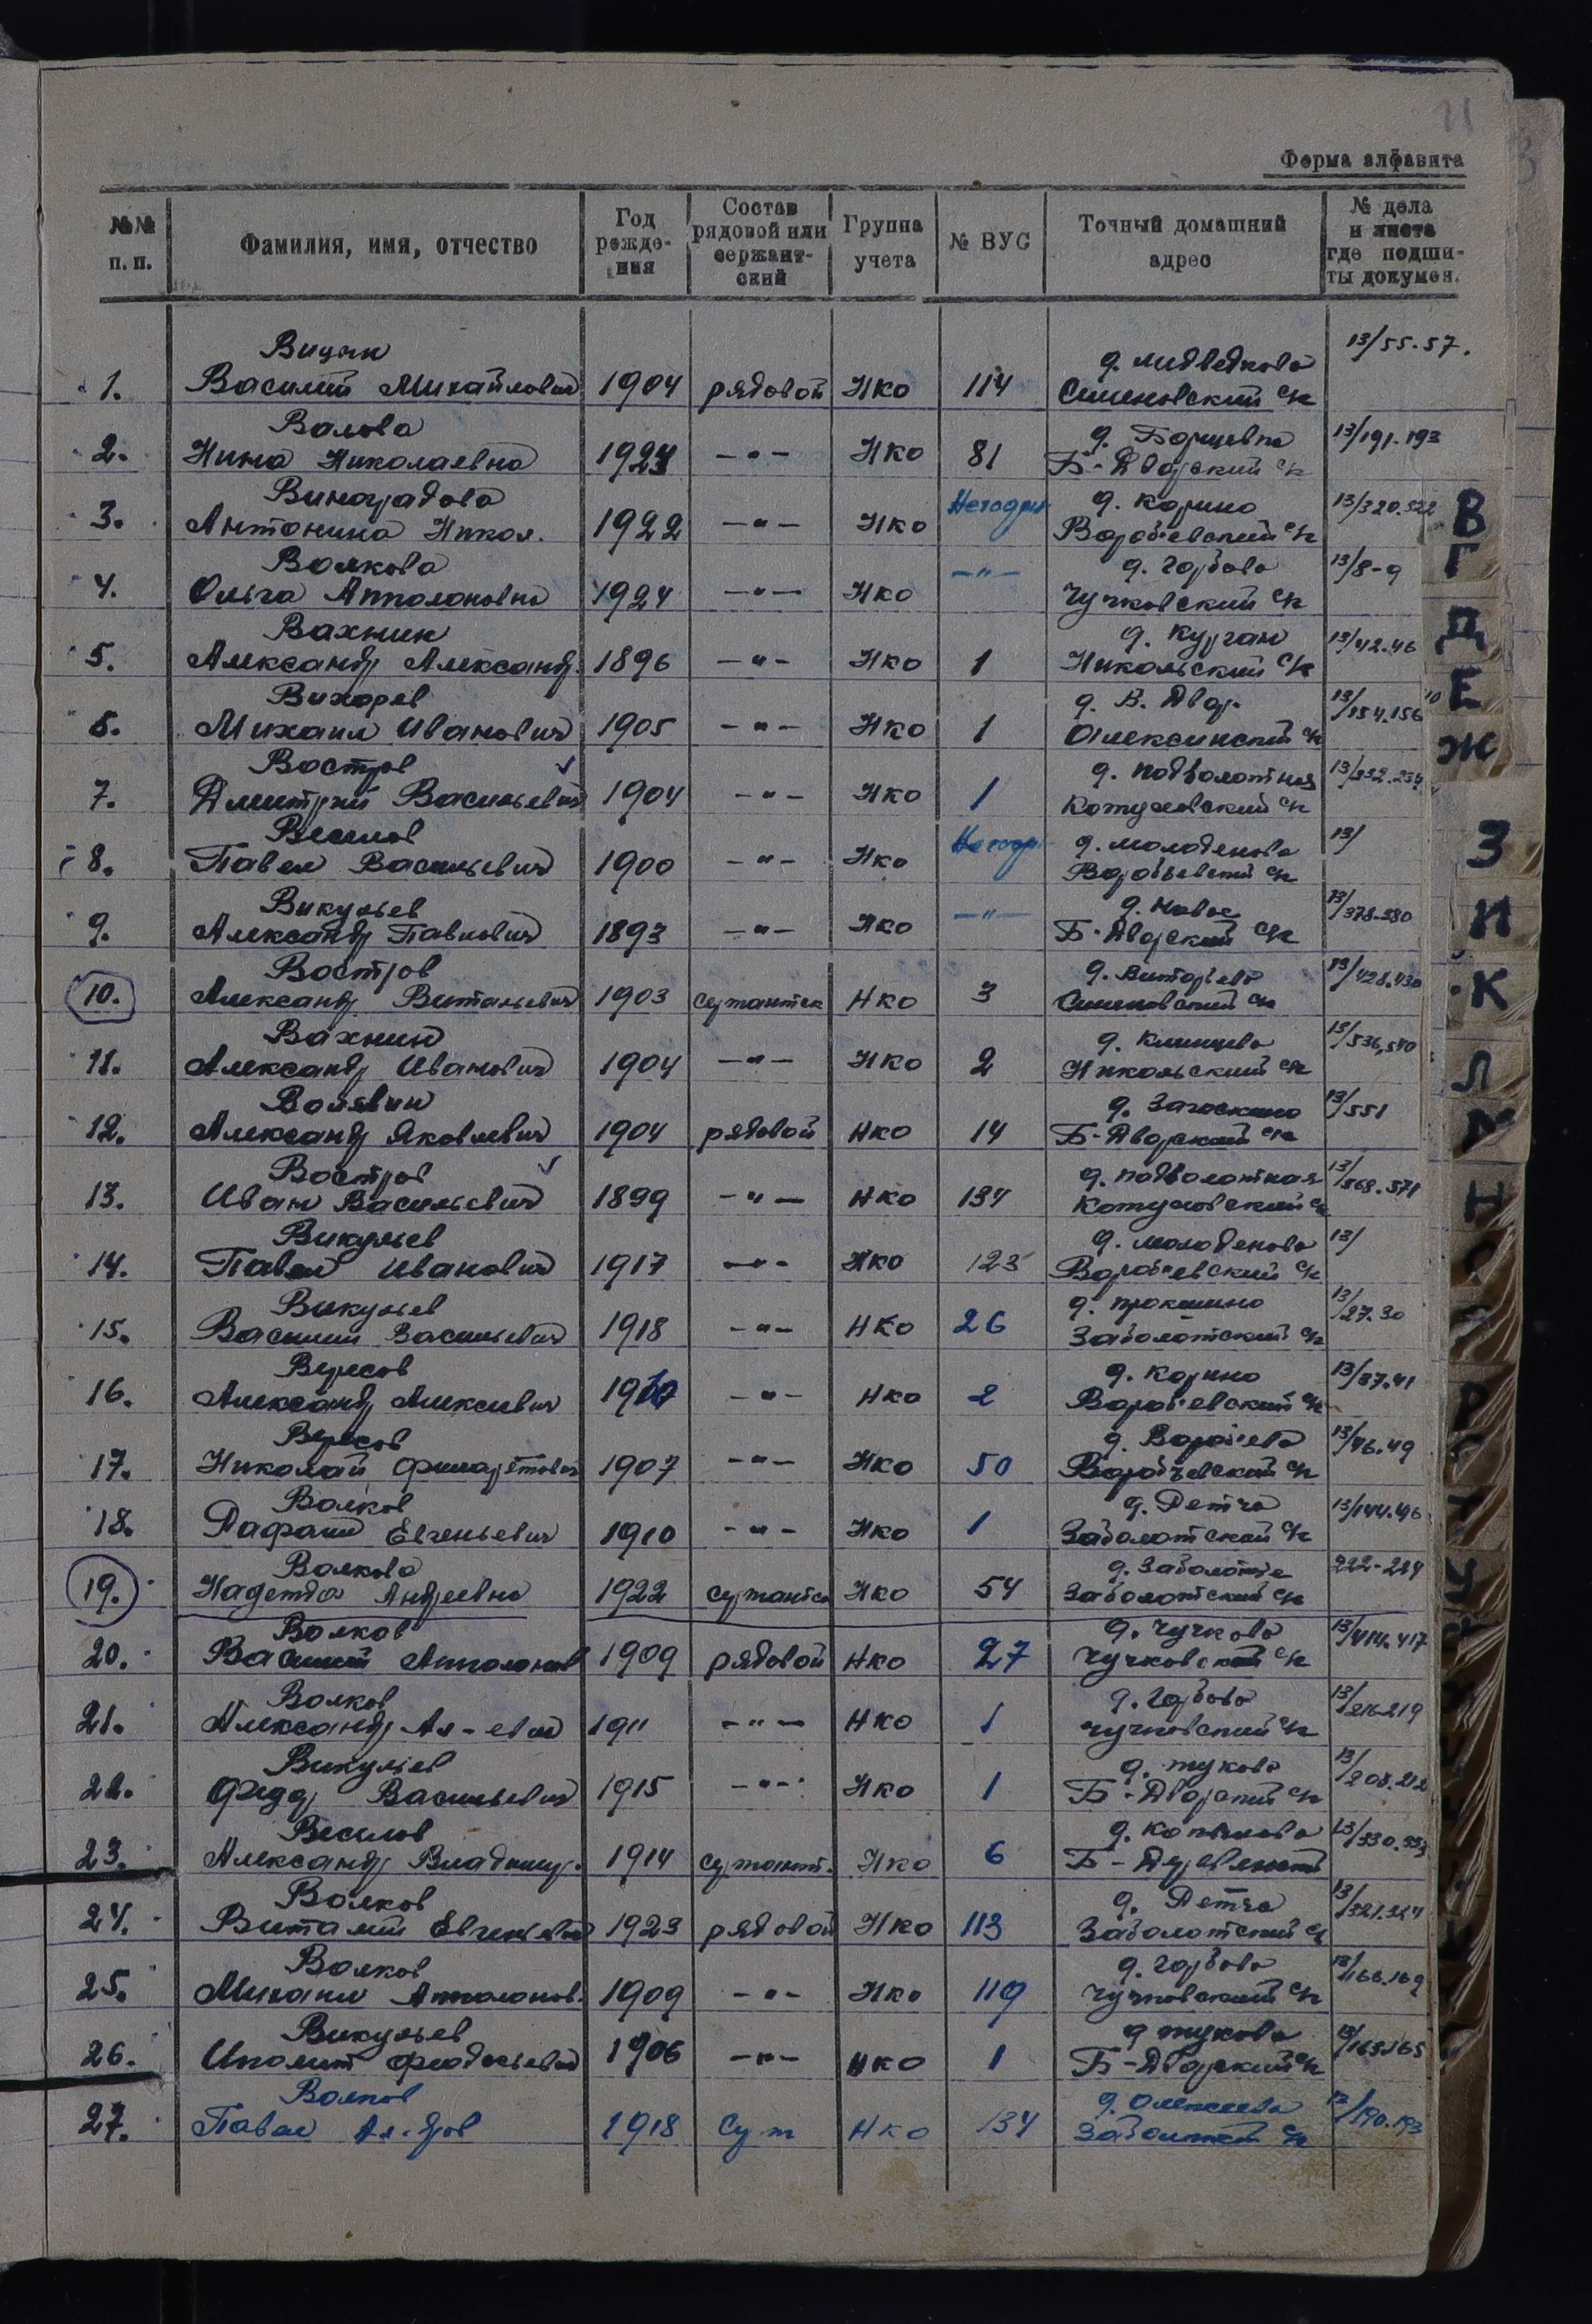 11
Форма алфавита
№№ п. п. Фамилия, имя, отчество Год рожде-ния Состав рядовой или сержант-ский Группа учета № ВУС Точный домашний адрес № дела и листа где подши-ты докумен.
13/55-57.
1. Василий Михайлович 1904 рядовой НКО 114 Семеновский с/с
Волова д. Борщевка 13/191-193
2. Нина Николаевна 1924 -"- НКО 81 Б-Дворский с/с
Виноградова Негодн д. Карино 13/320.322
3. Антонина Никол. 1922 -"- НКО Воробьевский с/с
Волкова -"- д. Горбово 13/8-9
4. Ольга Апполоновна 1924 -"- НКО Чучковский с/с
Вахнин д. Курган 13/42.46
5. Александр Александр. 1896 -"- НКО 1 Никольский с/с
Вихорев д. В. Двор. 13/154.156
6. Михаил Иванович 1905 -"- НКО 1 Алексинский с/с
Востров д. Подболотная
7. Дмитрий Васильевич 1904 -"- НКО 1
Веселов Негодн д. Молоденово 13/
8. Павел Васильевич 1900 -"- НКО Воробьевский с/с
Викульев -"- д. Новое 13/378.380
9. Александр Павлович 1893 -"- НКО Б-Дворский с/с
Востров 13/428.430
10. Александр Витальевич 1903 сержантск НКО 3
Вахнин 13/536,540
11. Александр Иванович 1904 -"- НКО 2 Никольский с/с
д. Загоскино 13/551
12. Александр Яковлевич 1904 рядовой НКО 14 Б-Дворский с/с
Востров д. Подболотная 13/568.571
13. Иван Васильевич 1899 -"- НКО 134
Викульев д. Молоденово 13/
14. Павел Иванович 1917 -"- НКО 123 Воробьевский с/с
Викульев д. Прокшино 13/27.30
15. Василий Васильевич 1918 -"- НКО 26 Заболотский с/с
Вересов д. Карино 13/37.41
16. Александр Алексеевич -"- НКО 2 Воробьевский с/с
Вересов д. Воробьево 13/46.49
17. Николай Филаретович 1907 -"- НКО 50 Воробьевский с/с
Волков д. Петча 13/144.46
18. Евгеньевич 1910 -"- НКО 1 Заболотский с/с
Волкова д. Заболотье 222-224
19. Надежда Андреевна 1922 сержантск НКО 54 Заболотский с/с
Волков д. Чучково 13/414.417
20. Василий Апполонов 1909 рядовой НКО 27 Чучковский с/с
Волков д. Горбово 13/216.219
21. Александр Ал-евич 1911 -"- НКО 1 Чучковский с/с
Викульев д. Жуково
22. Федор Васильевич 1915 -"- НКО 1 Б-Дворский с/с
Веселов д. Копылово 13/330.333
23. Александр Владимир. 1914 сержант. НКО 6
Волков д. Петча 13/321.324
24. Виталий Евгеньевич 1923 рядовой НКО 113 Заболотский с/с
Волков д. Горбово 13/166.169
25. Михаил Апполонов. 1909 -"- НКО 119 Чучковский с/с
Викульев д. Жуково 13/163.165
26. Иполит Феодосьевич 1906 -"- НКО 1 Б-Дворский с/с
Волков 13/190.193
27. Павел 1918 Серж НКО 134 Заболотский с/с
В
Г
Д
Е
Ж
З
И
К
Л
М
Н
О
П
Р
С
Т
У